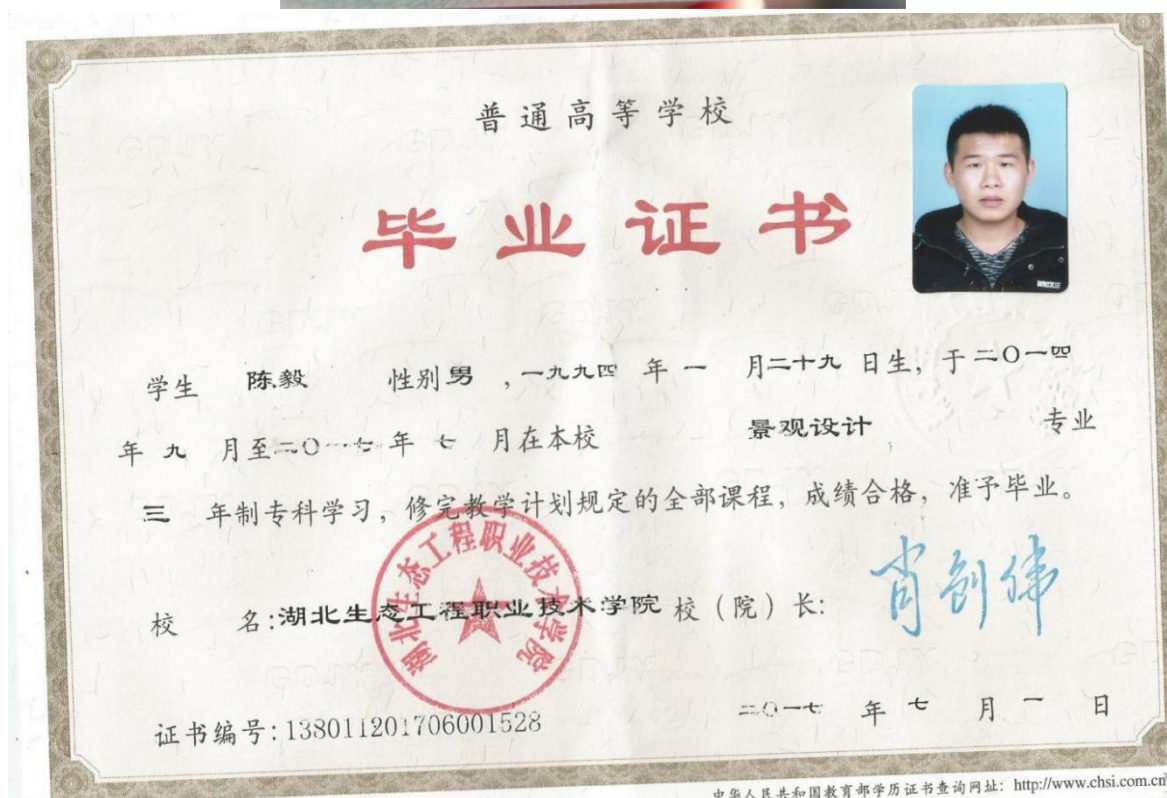 普通高等学校
毕业证书
学生 陈毅 性别 男 ，一九九四 年 一 月 二十九 日生，于 二〇一四
年 九 月至 二〇一七 年 七 月在本校 景观设计 专业
三 年制专科学习，修完教学计划规定的全部课程，成绩合格，准予毕业。
湖北生态工程职业技术学院
校 名：湖北生态工程职业技术学院 校（院）长： 肖创伟
证书编号：138011201706001528 二〇一七 年 七 月 一 日
中华人民共和国教育部学历证书查询网址：http://www.chsi.com.cn